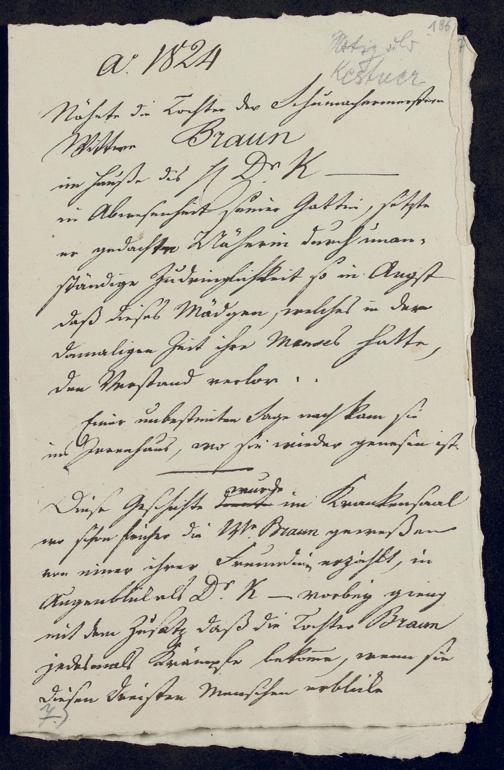 186
7
Notiz üb.
Kestner
a. 1824
Nähete die Tochter der Schumachermeisters
Wittwe Braun
im Hauße des H Dr K —
in Abwesenheit seiner Gattin, setzte
er gedachte Näherin durch unan-
ständige Zudringlichkeit so in Angst
daß dieses Mädgen, welches in der
damaligen Zeit ihre Menses hatte,
den Verstand verlor . .
Einer unbestimten Sage nach kam sie
ins Irrenhaus, wo sie wieder genesen ist.
Diese Geschichte wurde im Krankensaal
wo schon früher die Wwe Braun geweßen
von einer ihrer Freundin erzählt, im
Augenblik als Dr K — vorbey gieng
mit dem Zusatz daß die Tochter Braun
jedesmals Krämpfe bekome, wenn sie
diesen dreisten Menschen erblike
7)